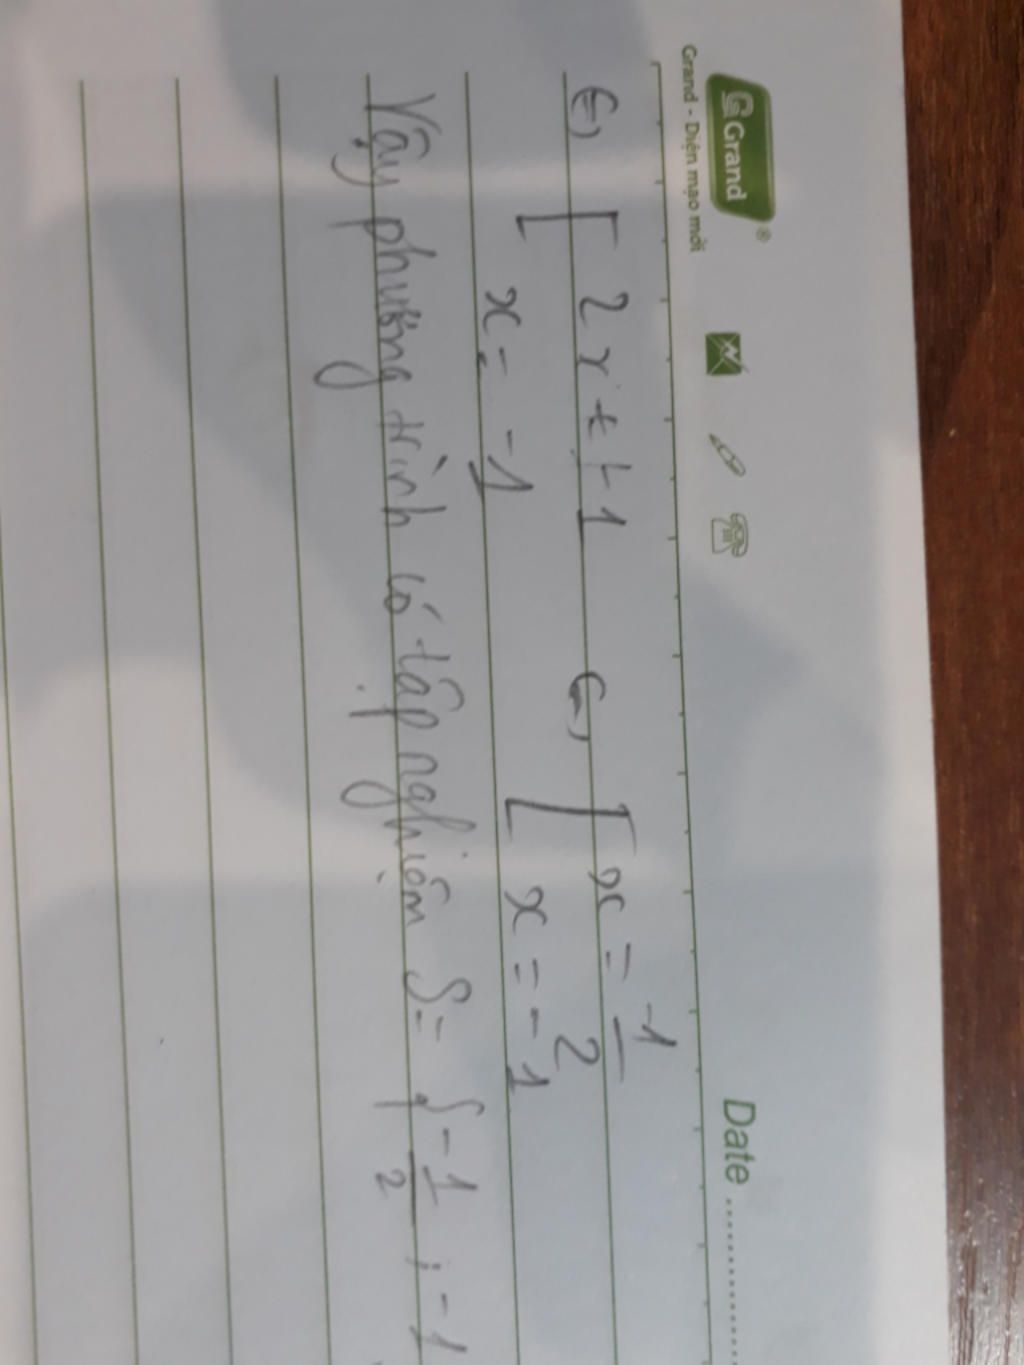 Grand®
Grand - Diện mạo mới
Date ..............
⇔ [ 2x + 1 ⇔ [ x = -1/2
x = -1 x = -1
Vậy phương trình có tập nghiệm S = { -1/2 ; -1